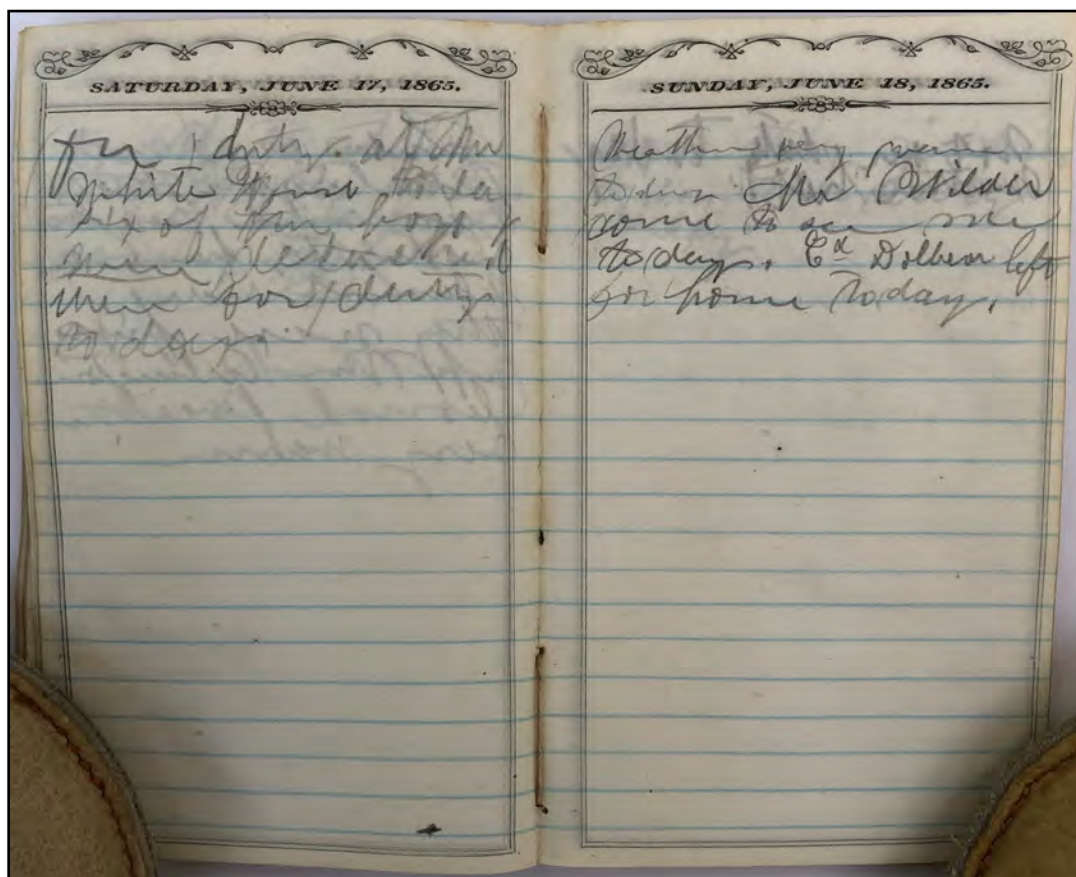 SATURDAY, JUNE 17, 1865.
for duty at the
White House to day
six of the boys
were detached
were for duty
to day.
SUNDAY, JUNE 18, 1865.
Weather very warm
to day. Mr Wilder
come to see me
to day. Dolbear left
for home to day.